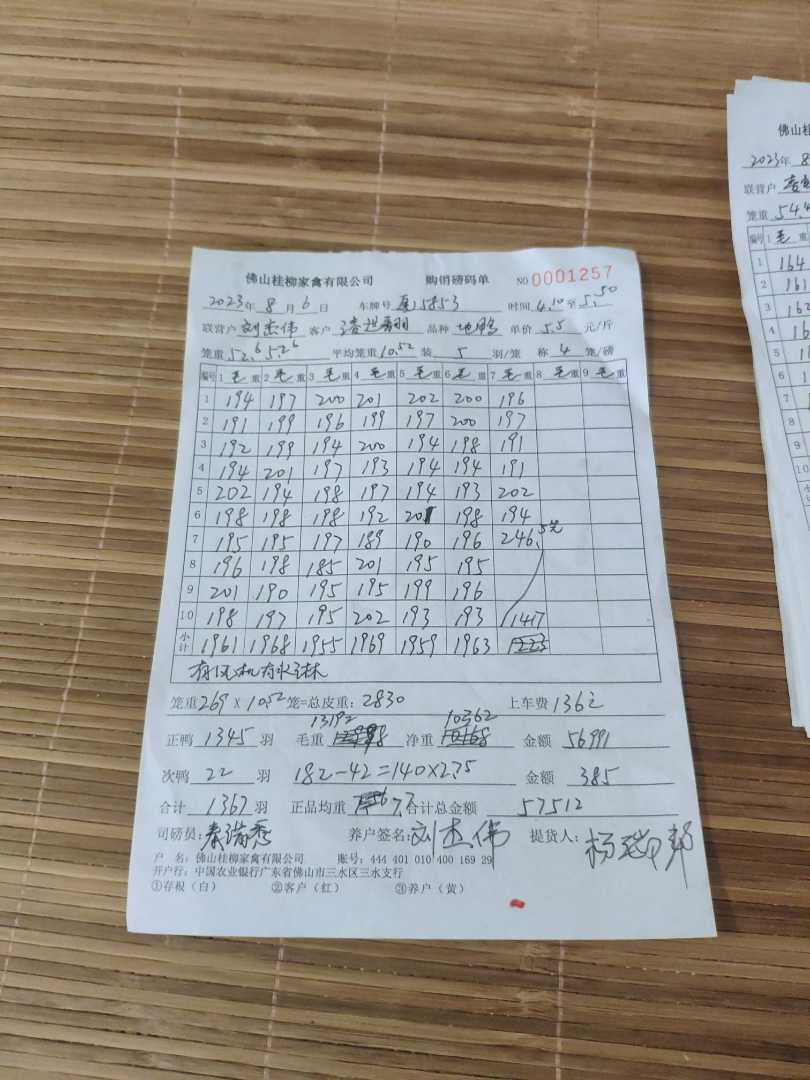 佛山桂柳家禽有限公司 购销磅码单 NO 0001257
2023年 8月 6日 车牌号 15853 时间 4.10 至 5.50
联营户 刘杰伟 客户 品种 地鸭 单价 5.5 元/斤
笼重 52.6 52.6 平均笼重 10.52 装 5 羽/笼 称 4 笼/磅
编号 1 毛重 2 毛重 3 毛重 4 毛重 5 毛重 6 毛重 7 毛重 8 毛重 9 毛重
1 194 197 200 201 202 200 196
2 191 199 196 199 197 200 197
3 192 199 194 200 194 198 191
4 194 201 197 193 194 194 191
5 202 194 198 197 194 193 202
6 198 198 198 192 201 198 194
7 195 195 197 189 190 196 246.5笼
8 196 198 185 201 195 195
9 201 190 195 195 199 196
10 198 197 195 202 193 193 1417
小计 1961 1968 1955 1969 1959 1963
有风机有水淋
笼重 269 X 10.52 笼=总皮重: 2830 上车费 136元
正鸭 1345 羽 毛重 13192 净重 10362 金额 56991
次鸭 22 羽 182-42=140×2.75 金额 385
合计 1367 羽 正品均重 7.7 合计总金额 57512
司磅员: 养户签名: 刘杰伟 提货人:
户 名: 佛山桂柳家禽有限公司 账号: 444 401 010 400 169 29
开户行: 中国农业银行广东省佛山市三水区三水支行
①存根(白) ②客户(红) ③养户(黄)
佛山桂
2023年 8
联营户
笼重 54.4
编号 1 毛重
1 164
2 161
3 162
4
5
6
7
8
9